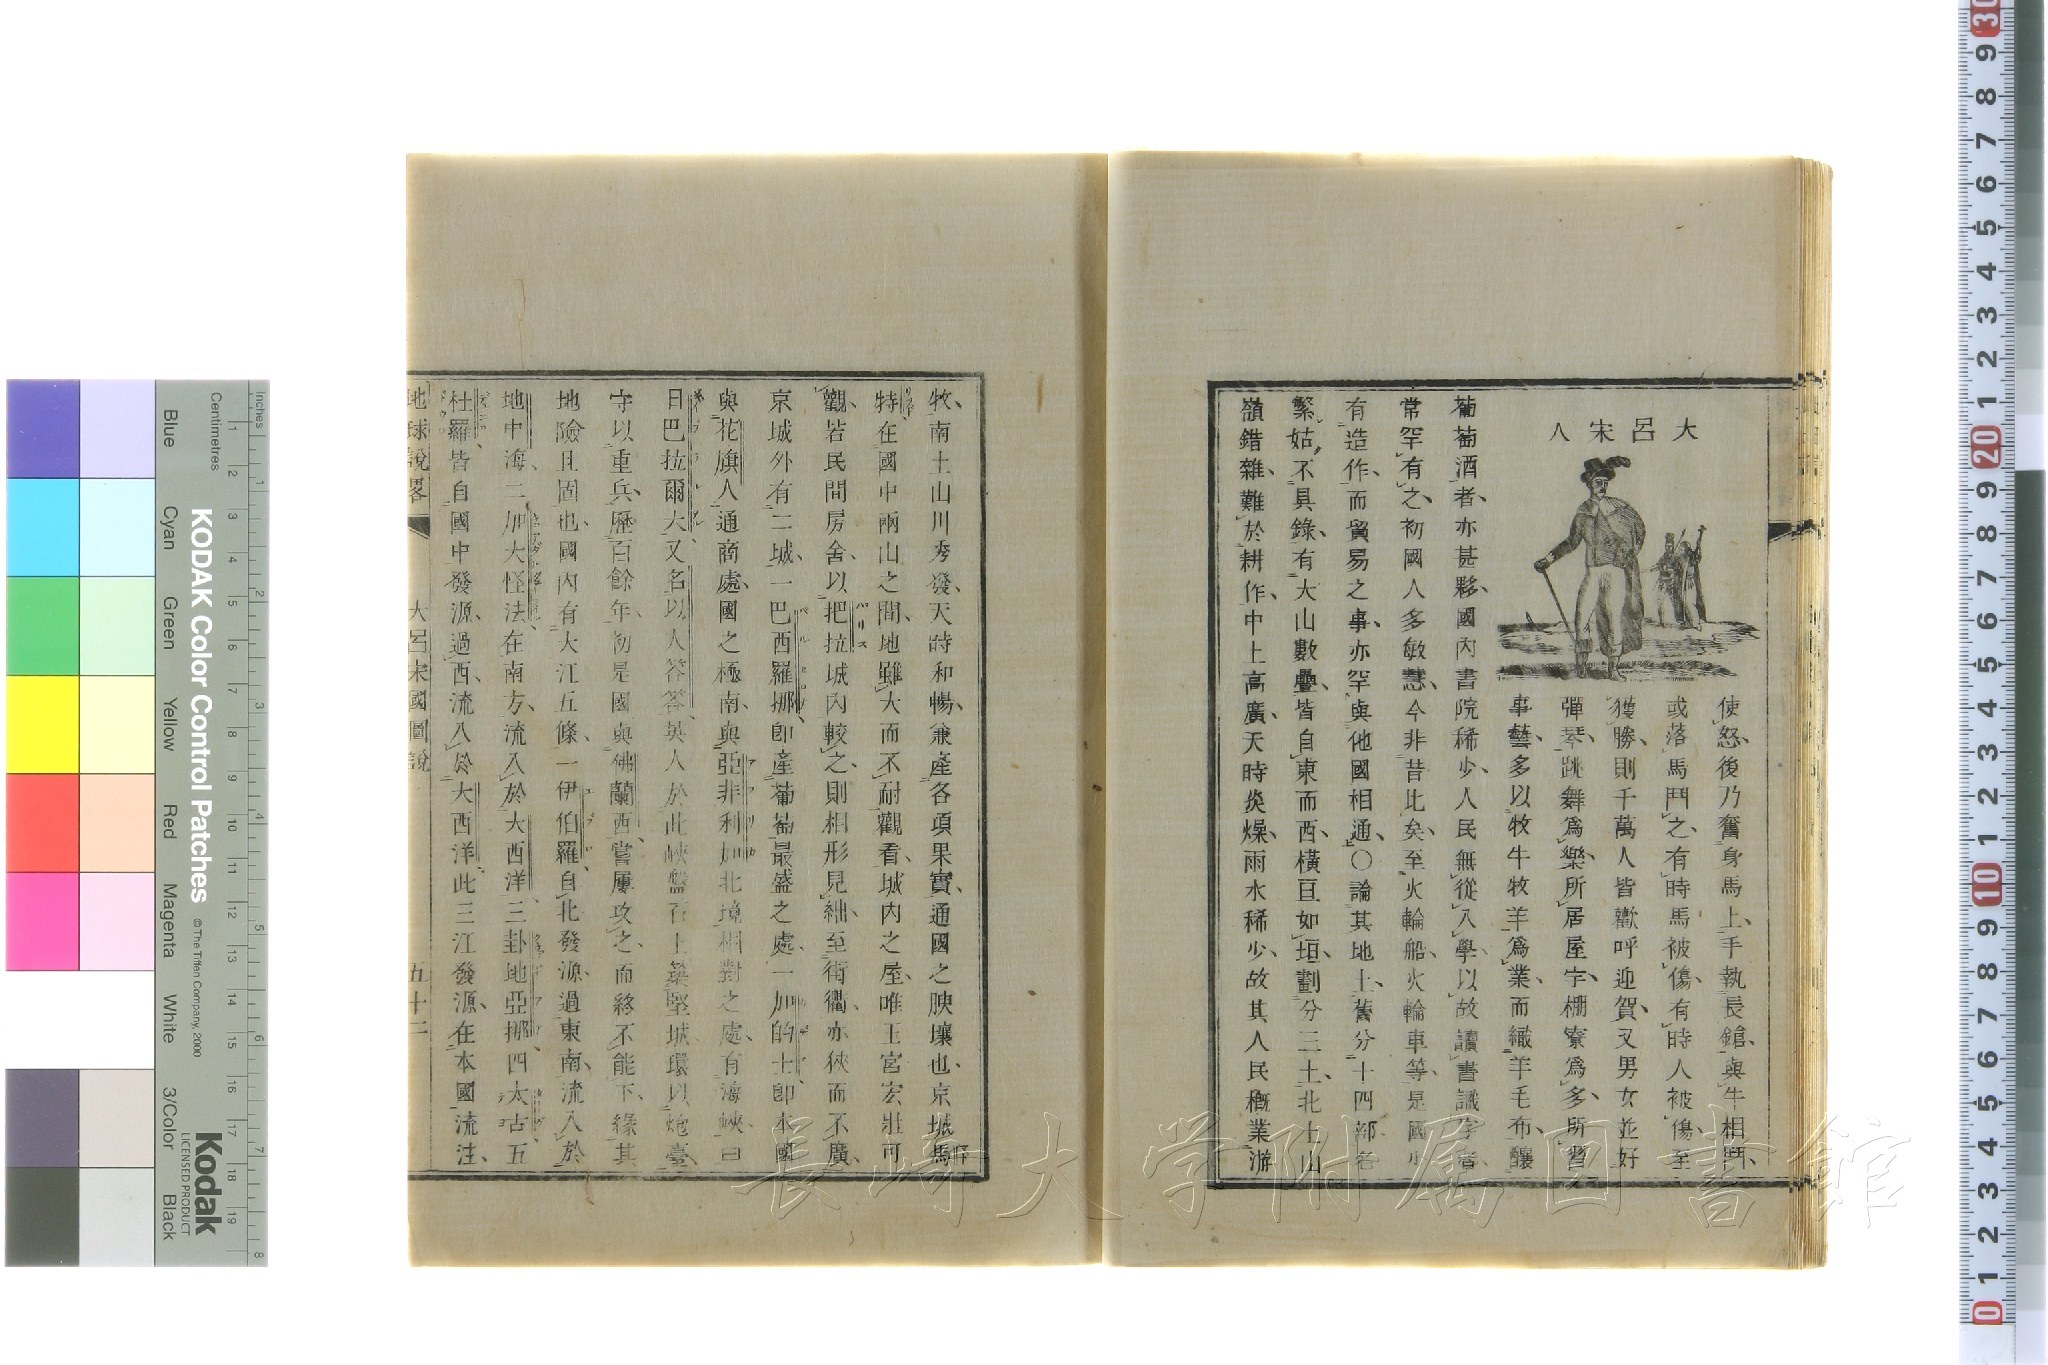 大呂宋人
使怒、後乃奮身馬上、手執長鎗、與牛相鬥、
或落馬鬥之、有時馬被傷、有時人被傷、至
獲勝、則千萬人皆歡呼迎賀、又男女並好
彈琴、跳舞爲樂、所居屋宇、棚寮爲多、所習
事藝、多以牧牛牧羊爲業、而織羊毛布、釀
葡萄酒者、亦甚夥、國內書院稀少、人民無從入學、以故讀書識字者、
常罕有之、初國人多敏慧、今非昔比矣、至火輪船、火輪車等、是國少
有造作、而貿易之事、亦罕與他國相通、〇論其地土、舊分十四部、名
繁、姑不具錄、有大山數疊、皆自東而西、橫亘如垣、劃分三土、北土山
嶺錯雜、難於耕作、中土高廣、天時炎燥、雨水稀少、故其人民槪業游
牧、南土山川秀發、天時和暢、兼產各項果實、通國之腴壤也、京城馬
特、在國中兩山之間、地雖大而不耐觀看、城內之屋、唯王宮宏壯可
觀、若民間房舍、以把拉城內較之、則相形見絀、至街衢、亦狹而不廣、
京城外有二城、一巴西羅挪、卽產葡萄最盛之處、一加的士、卽本國
與花旗人通商處、國之極南、與亞非利加北境相對之處、有海峽、曰
日巴拉爾大、又名以人答答、英人於此峽盤石上、築堅城、環以炮臺、
守以重兵、歷百餘年、初是國與佛蘭西、嘗屢攻之、而終不能下、緣其
地險且固也、國內有大江五條、一伊伯羅、自北發源、過東南、流入於
地中海、二加大怪法、在南方、流入於大西洋、三卦地亞挪、四太古、五
杜羅、皆自國中發源、過西、流入於大西洋、此三江發源、在本國流注、
地球說畧 大呂宋國圖說 五十二
KODAK Color Control Patches
© The Tiffen Company, 2000
Kodak
LICENSED PRODUCT
Inches
Centimetres
Blue Cyan Green Yellow Red Magenta White 3/Color Black
長崎大学附属図書館